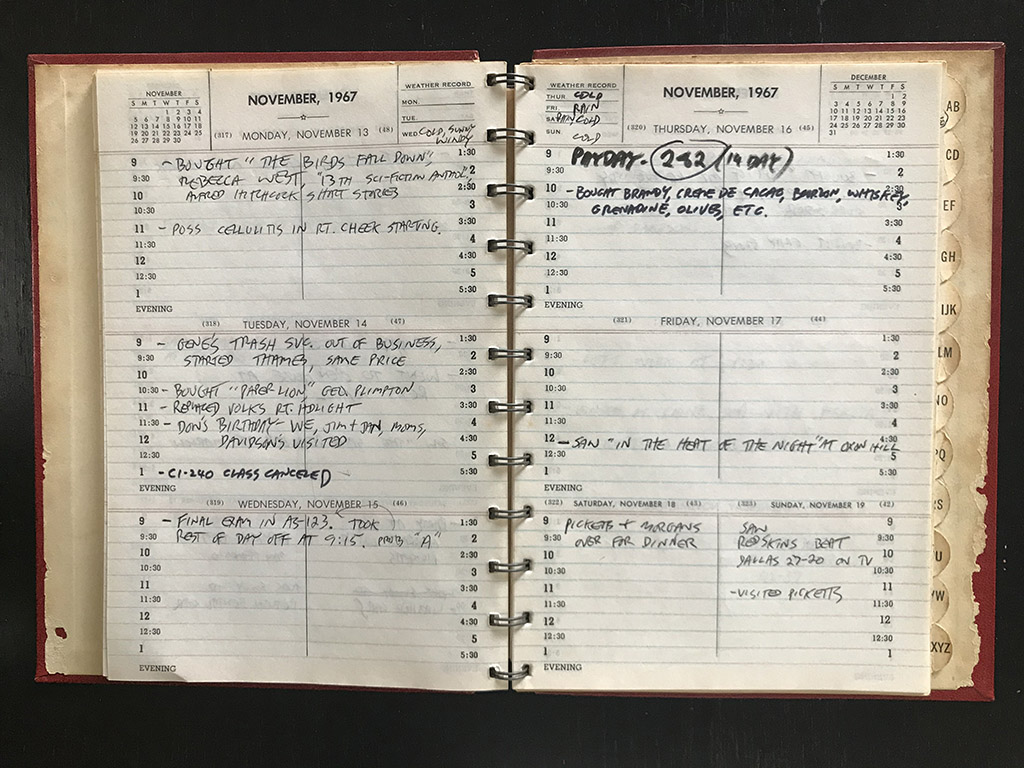 NOVEMBER
S M T W T F S
1 2 3 4
5 6 7 8 9 10 11
12 13 14 15 16 17 18
19 20 21 22 23 24 25
26 27 28 29 30
NOVEMBER, 1967
WEATHER RECORD
MON.
TUE.
WED. COLD, SUNNY
WINDY
(317) MONDAY, NOVEMBER 13 (48)
9 - BOUGHT "THE BIRDS FALL DOWN", 1:30
9:30 REBECCA WEST, "13TH SCI-FICTION ANTHOL", 2
10 ALFRED HITCHCOCK SHORT STORIES 2:30
10:30 3
11 - POSS CELLULITIS IN RT. CHEEK STARTING. 3:30
11:30 4
12 4:30
12:30 5
1 5:30
EVENING
(318) TUESDAY, NOVEMBER 14 (47)
9 - GENE'S TRASH SVC. OUT OF BUSINESS, 1:30
9:30 STARTED THAMES, SAME PRICE 2
10 2:30
10:30 - BOUGHT "PAPER LION", GEO. PLIMPTON 3
11 - REPLACED VOLKS RT. HDLIGHT 3:30
11:30 - DON'S BIRTHDAY - WE, JIM + JAN, MOMS, 4
12 DAVIDSON'S VISITED 4:30
12:30 5
1 - CI-240 CLASS CANCELED 5:30
EVENING
(319) WEDNESDAY, NOVEMBER 15 (46)
9 - FINAL EXAM IN AS-123. TOOK 1:30
9:30 REST OF DAY OFF AT 9:15. PROB "A" 2
10 2:30
10:30 3
11 3:30
11:30 4
12 4:30
12:30 5
1 5:30
EVENING
WEATHER RECORD
THUR. COLD
FRI. RAIN
SAT. RAIN COLD
SUN COLD
NOVEMBER, 1967
DECEMBER
S M T W T F S
1 2
3 4 5 6 7 8 9
10 11 12 13 14 15 16
17 18 19 20 21 22 23
24 25 26 27 28 29 30
31
(320) THURSDAY, NOVEMBER 16 (45)
9 PAYDAY - 292 (14 DAY) 1:30
9:30 2
10 - BOUGHT BRANDY, CREME DE CACAO, BOURBON, WHISKEY, 2:30
10:30 GRENADINE, OLIVES, ETC. 3
11 3:30
11:30 4
12 4:30
12:30 5
1 5:30
EVENING
(321) FRIDAY, NOVEMBER 17 (44)
9 1:30
9:30 2
10 2:30
10:30 3
11 3:30
11:30 4
12 - SAW "IN THE HEAT OF THE NIGHT" AT OXON HILL 4:30
12:30 5
1 5:30
EVENING
(322) SATURDAY, NOVEMBER 18 (43)
9 PICKETTS + MORGANS
9:30 OVER FOR DINNER
10
10:30
11
11:30
12
12:30
1
EVENING
(323) SUNDAY, NOVEMBER 19 (42)
SAW 9
REDSKINS BEAT 9:30
DALLAS 27-20 ON TV 10
10:30
- VISITED PICKETTS 11
11:30
12
12:30
1
AB
CD
EF
GH
IJK
LM
NO
PQ
RS
TU
VW
XYZ